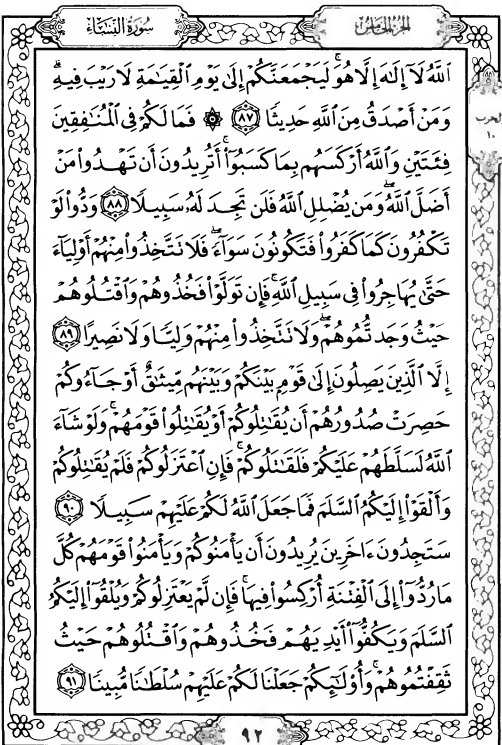 سُورَةُ النِّسَاءِ
الجُزْءُ الخَامِسُ
اللَّهُ لَآ إِلَٰهَ إِلَّا هُوَۚ لَيَجْمَعَنَّكُمْ إِلَىٰ يَوْمِ الْقِيَٰمَةِ لَا رَيْبَ فِيهِۗ
وَمَنْ أَصْدَقُ مِنَ اللَّهِ حَدِيثًا ٨٧ ۞ فَمَا لَكُمْ فِي الْمُنَٰفِقِينَ
فِئَتَيْنِ وَاللَّهُ أَرْكَسَهُم بِمَا كَسَبُوٓا۟ۚ أَتُرِيدُونَ أَن تَهْدُوا۟ مَنْ
أَضَلَّ اللَّهُۖ وَمَن يُضْلِلِ اللَّهُ فَلَن تَجِدَ لَهُۥ سَبِيلًا ٨٨ وَدُّوا۟ لَوْ
تَكْفُرُونَ كَمَا كَفَرُوا۟ فَتَكُونُونَ سَوَآءًۖ فَلَا تَتَّخِذُوا۟ مِنْهُمْ أَوْلِيَآءَ
حَتَّىٰ يُهَاجِرُوا۟ فِي سَبِيلِ اللَّهِۚ فَإِن تَوَلَّوْا۟ فَخُذُوهُمْ وَاقْتُلُوهُمْ
حَيْثُ وَجَدتُّمُوهُمْۖ وَلَا تَتَّخِذُوا۟ مِنْهُمْ وَلِيًّا وَلَا نَصِيرًا ٨٩
إِلَّا الَّذِينَ يَصِلُونَ إِلَىٰ قَوْمٍۭ بَيْنَكُمْ وَبَيْنَهُم مِّيثَٰقٌ أَوْ جَآءُوكُمْ
حَصِرَتْ صُدُورُهُمْ أَن يُقَٰتِلُوكُمْ أَوْ يُقَٰتِلُوا۟ قَوْمَهُمْۚ وَلَوْ شَآءَ
اللَّهُ لَسَلَّطَهُمْ عَلَيْكُمْ فَلَقَٰتَلُوكُمْۚ فَإِنِ اعْتَزَلُوكُمْ فَلَمْ يُقَٰتِلُوكُمْ
وَأَلْقَوْا۟ إِلَيْكُمُ السَّلَمَ فَمَا جَعَلَ اللَّهُ لَكُمْ عَلَيْهِمْ سَبِيلًا ٩٠
سَتَجِدُونَ ءَاخَرِينَ يُرِيدُونَ أَن يَأْمَنُوكُمْ وَيَأْمَنُوا۟ قَوْمَهُمْ كُلَّ
مَا رُدُّوٓا۟ إِلَى الْفِتْنَةِ أُرْكِسُوا۟ فِيهَاۚ فَإِن لَّمْ يَعْتَزِلُوكُمْ وَيُلْقُوٓا۟ إِلَيْكُمُ
السَّلَمَ وَيَكُفُّوٓا۟ أَيْدِيَهُمْ فَخُذُوهُمْ وَاقْتُلُوهُمْ حَيْثُ
ثَقِفْتُمُوهُمْۚ وَأُو۟لَٰٓئِكُمْ جَعَلْنَا لَكُمْ عَلَيْهِمْ سُلْطَٰنًا مُّبِينًا ٩١
الحزب
١٠
٩٢